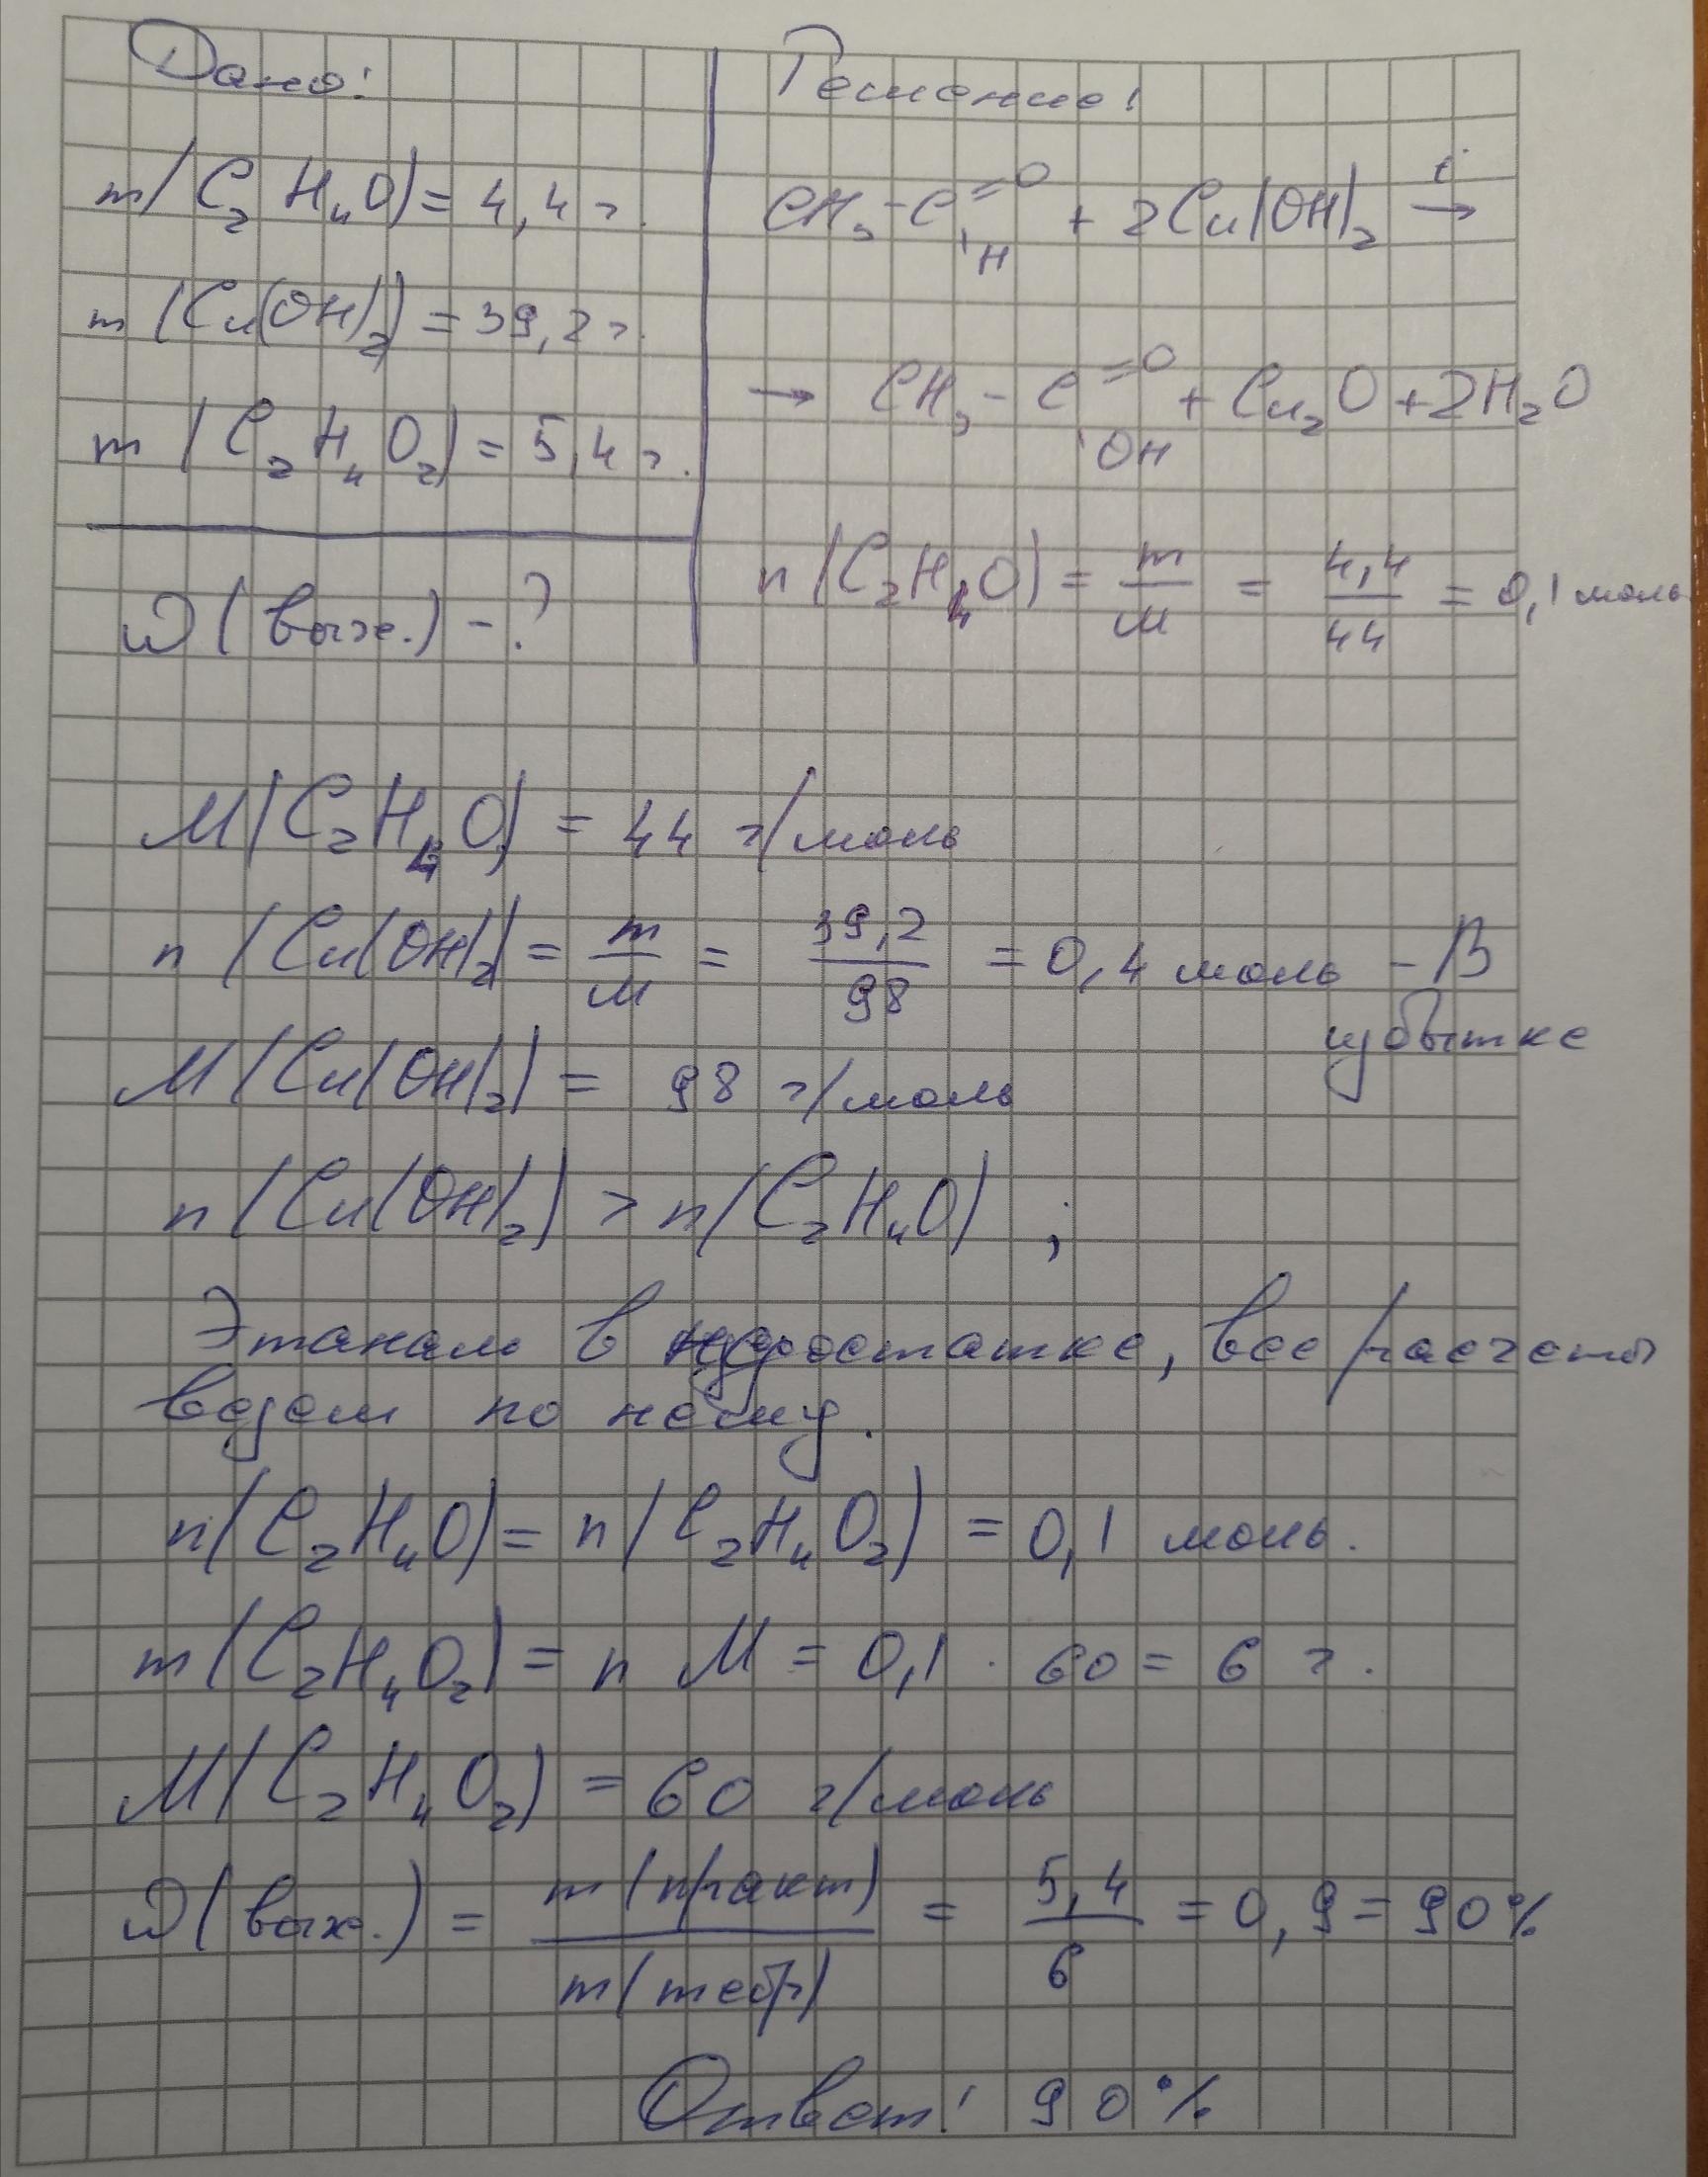 Дано:
m(C₂H₄O) = 4,4 г.
m(Cu(OH)₂) = 39,2 г.
m(C₂H₄O₂) = 5,4 г.
ω(вых.) - ?
Решение:
CH₃-C=O + 2Cu(OH)₂ t→
H
→ CH₃-C=O + Cu₂O + 2H₂O
OH
n(C₂H₄O) = m/M = 4,4/44 = 0,1 моль
M(C₂H₄O) = 44 г/моль
n(Cu(OH)₂) = m/M = 39,2/98 = 0,4 моль - В
избытке
M(Cu(OH)₂) = 98 г/моль
n(Cu(OH)₂) > n(C₂H₄O) ;
Этаналь в недостатке, все расчеты
ведем по нему.
n(C₂H₄O) = n(C₂H₄O₂) = 0,1 моль.
m(C₂H₄O₂) = n M = 0,1 · 60 = 6 г.
M(C₂H₄O₂) = 60 г/моль
ω(вых.) = m(практ)/m(теор) = 5,4/6 = 0,9 = 90%
Ответ: 90%